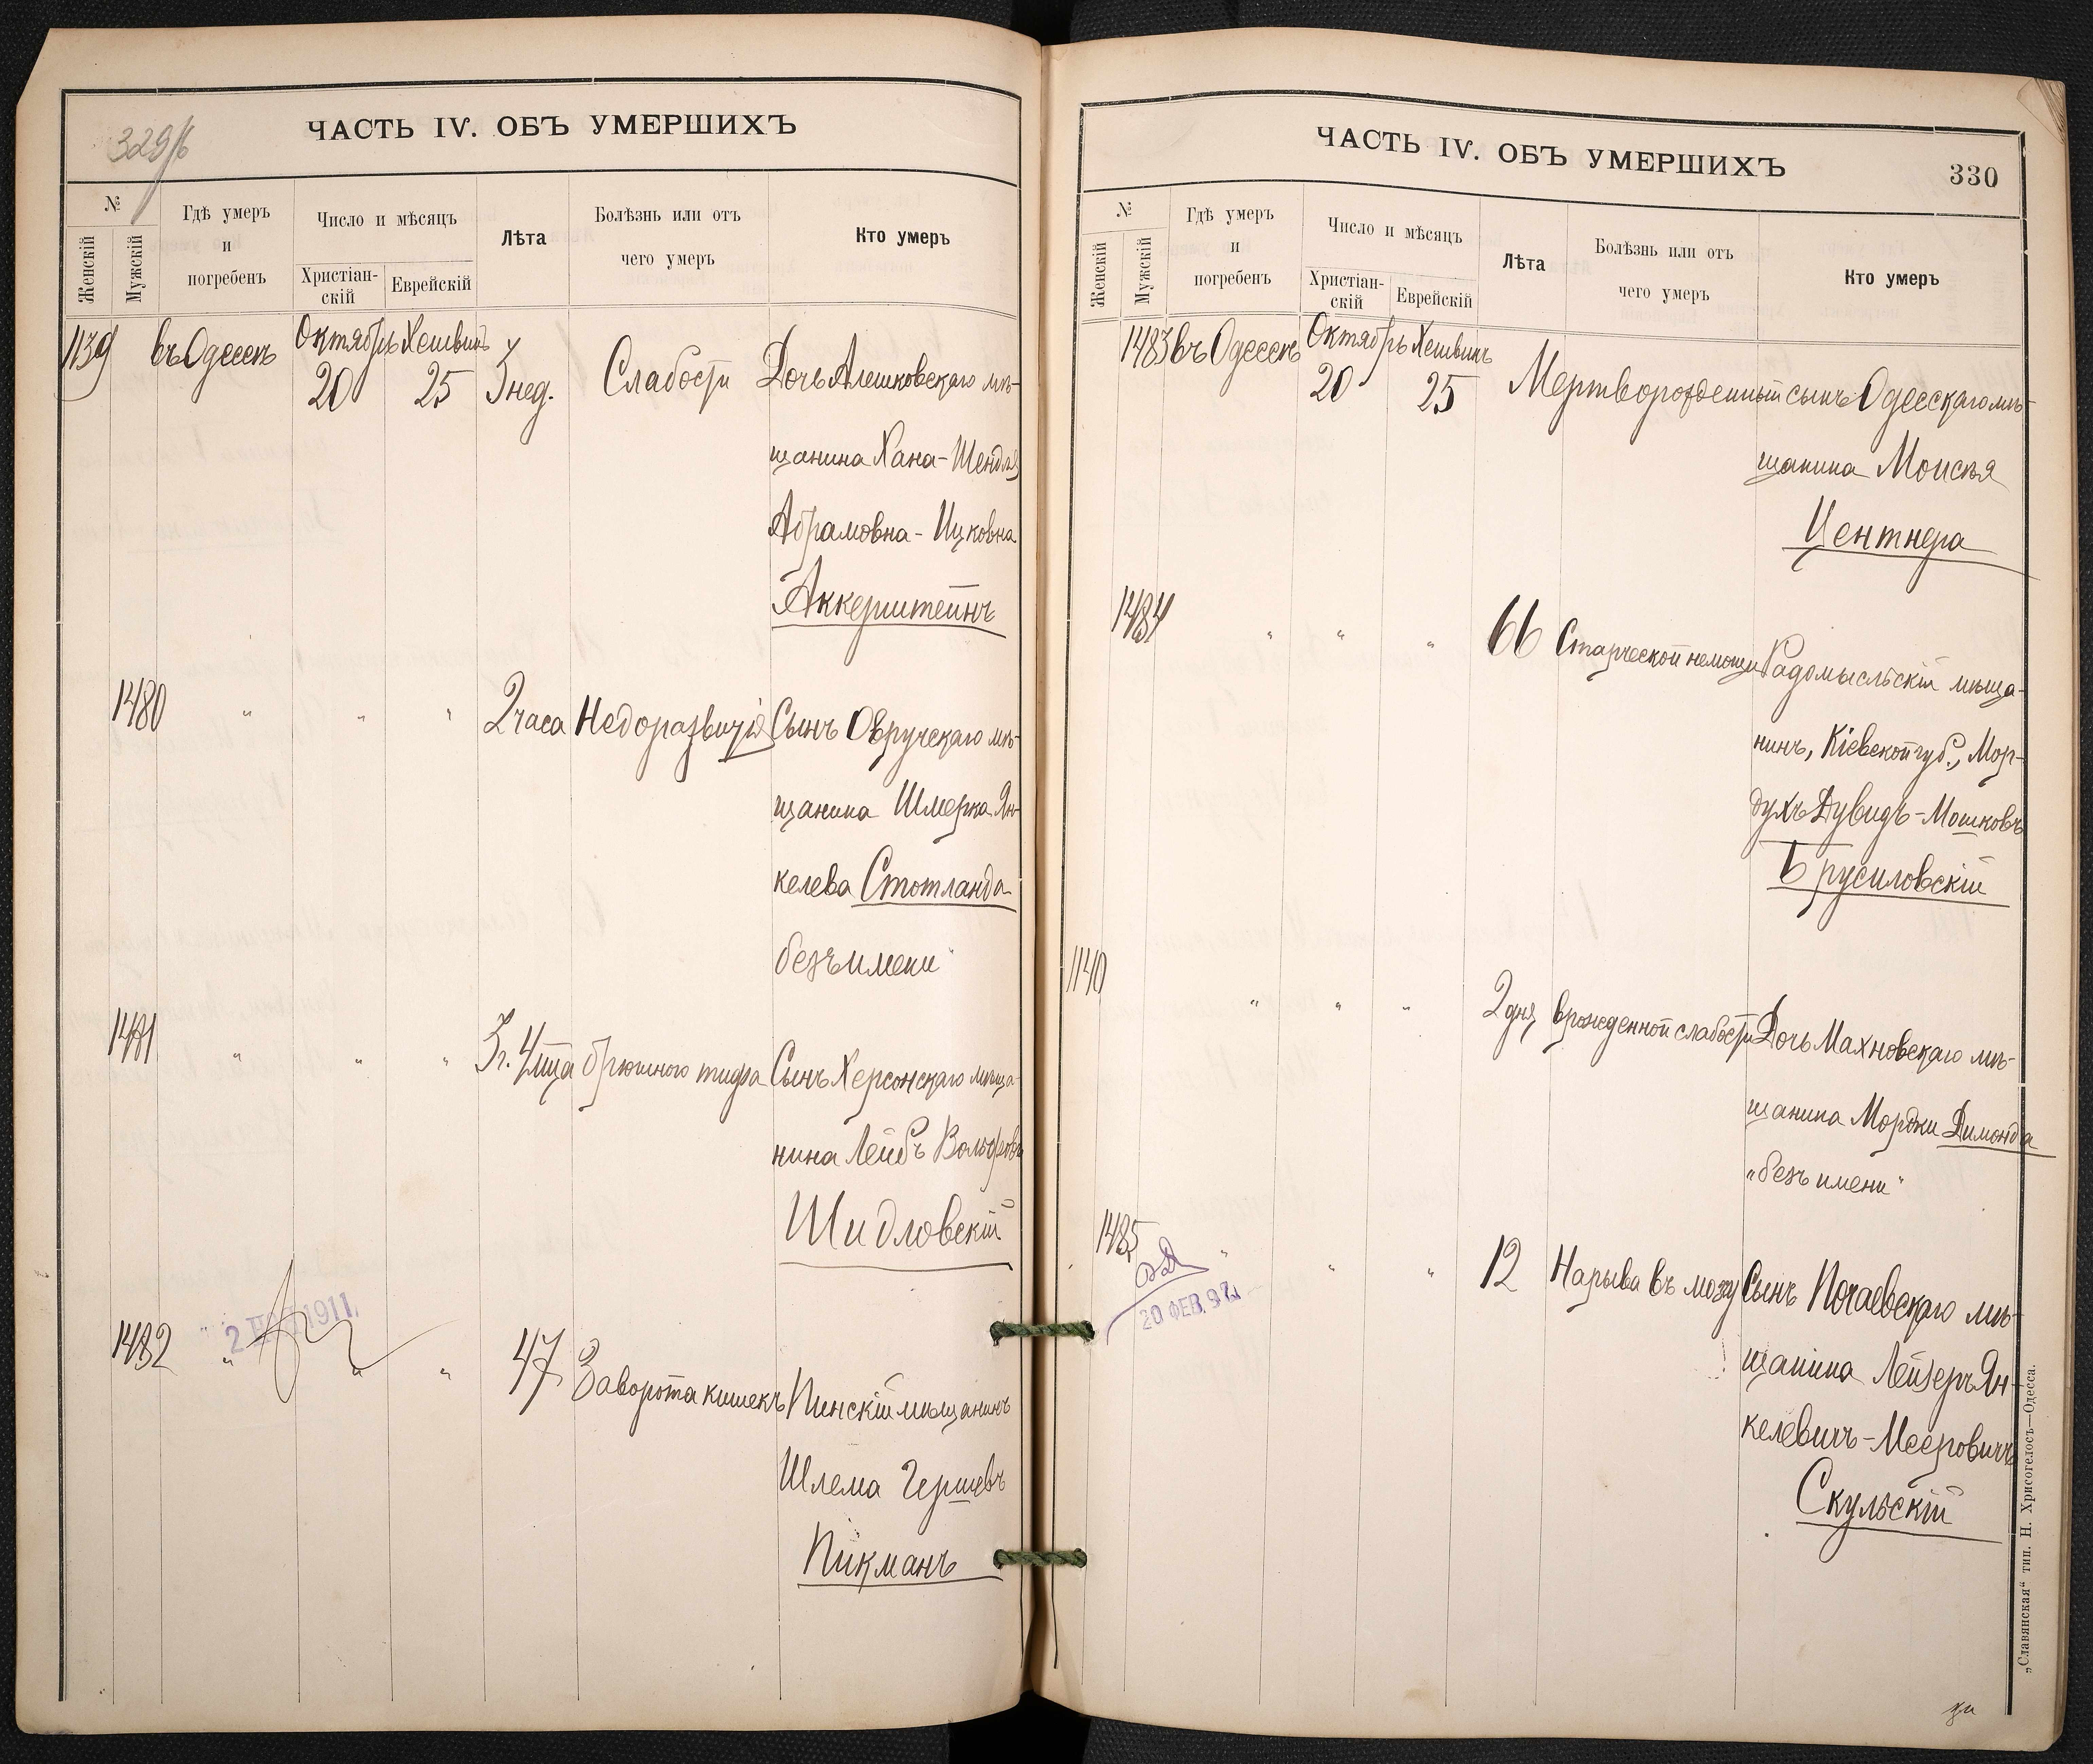 329/б
ЧАСТЬ IV. ОБЪ УМЕРШИХЪ
№
Женскій
Мужскій
Гдѣ умеръ
и
погребенъ
Число и мѣсяцъ
Христіан-
скій
Еврейскій
Лѣта
Болѣзнь или отъ
чего умеръ
Кто умеръ
1139 въ Одессѣ Октябрь Хешвинъ
20 25 3 нед. Слабости Дочь Алешковскаго мѣ-
щанина Хана-Шендля
Абрамовна-Ицковна
Аккерштейнъ
1480 " " " 2 часа Недоразвитія Сынъ Овручскаго мѣ-
щанина Шмерка Ян-
келева Стотланда
безъ имени"
1481 " " " 3 г. 4 м̃ца брюшного тифа Сынъ Херсонскаго мѣща-
нина Лейбъ Вольфовъ
Шидловскій
2 1911.
1482 " " " 47 Заворота кишекъ Пинскій мѣщанинъ
Шлема Гершевъ
Пикманъ
ЧАСТЬ IV. ОБЪ УМЕРШИХЪ
330
№
Женскій
Мужскій
Гдѣ умеръ
и
погребенъ
Число и мѣсяцъ
Христіан-
скій
Еврейскій
Лѣта
Болѣзнь или отъ
чего умеръ
Кто умеръ
1483 въ Одессѣ Октябрь Хешвинъ
20 25 Мертворожденный сынъ Одесскаго мѣ-
щанина Моисѣя
Центнера
1484 " " " 66 Старческой немощи Радомысльскій мѣща-
нинъ, Кіевской губ., Мор-
духъ Дувидъ-Мошковъ
Брусиловскій
1140 " " " 2 дня врожденной слабости Дочь Махновскаго мѣ-
щанина Мордки Димонда
"безъ имени"
1485 " " " 12 Нарыва въ мозгу Сынъ Почаевскаго мѣ-
20 ФЕВ. 97
щанина Лейзеръ Ян-
келевичъ-Мееровичъ
Скульскій
„Славянская“ тип. Н. Хрисогелосъ—Одесса.